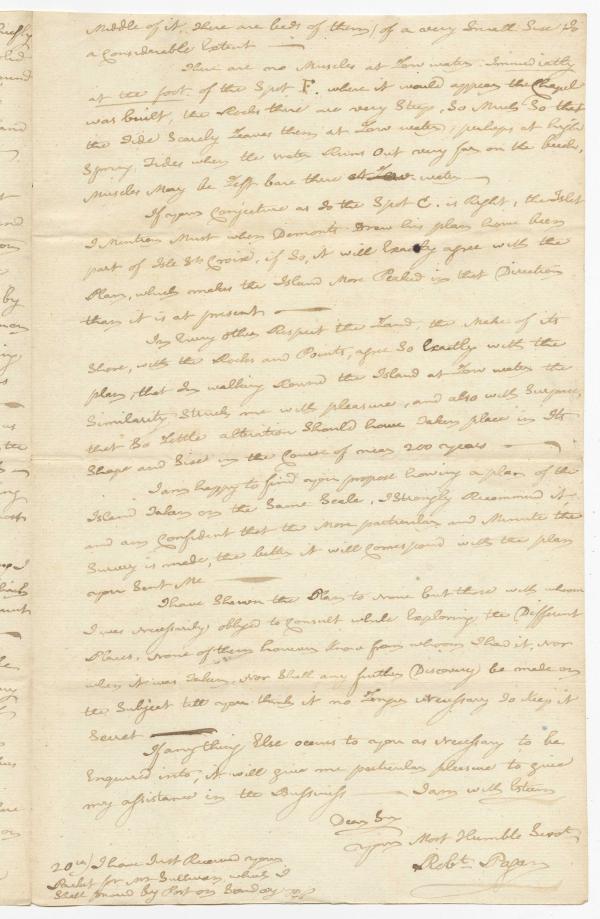 Middle of it, there are beds of them, of a very Small Size to
a Considerable Extent
There are no Muscles at Low water Immediatly
at the foot of the Spot F. where it would appear the Chapel
was built, the Rocks there are very Steep, So Much So that
the Tide Scarcly Leaves them at Low water, perhaps at high
Spring Tides when the water Runs Out very far on the beech,
Muscles May be Left bare there at Low water
If your Conjecture as to the Spot C. is Right, the Islet
I Mention Must when Demonts Drew his plan have been
part of Isle St. Croix, if So, it will Exactly agree with the
Plan, which makes the Island More Peaked in that Direction
than it is at present
In Every other Respect the Land, the Make of its
Shore, with the Rocks and Points, agree So Exactly with the
plan, that In walking Round the Island at Low water the
Similarity Struck me with pleasure, and also with Surprise,
that So Little altration Should have taken place in Its
Shape and Size in the Course of near 200 years
I am happy to find you propose having a plan of the
Island Taken on the Same Scale, I Strongly Recommend it
and am Confident that the More particular and Minute the
Survey is made, the better it will Correspond with the plan
you Sent Me
I have Shewn the Plan to None but those with whom
I was Necessarily obliged to Consult while Exploring the Different
Places, None of them however know from whom I had it, Nor
when it was Taken, Nor Shall any further Discovery be made on
the Subject till you think it no Longer Necessary to Keep it
Secret
If anything Else occurs to you as Necessary to be
Enquired into, it will give me particular pleasure to give
my assistance in the Bussiness I am with Esteem
Dear Sir
your Most Humble Servt
Robt. Pagan
20th I have Just Received your
Packet for Mr Sullivan which I
Shall forward by Post on Sunday